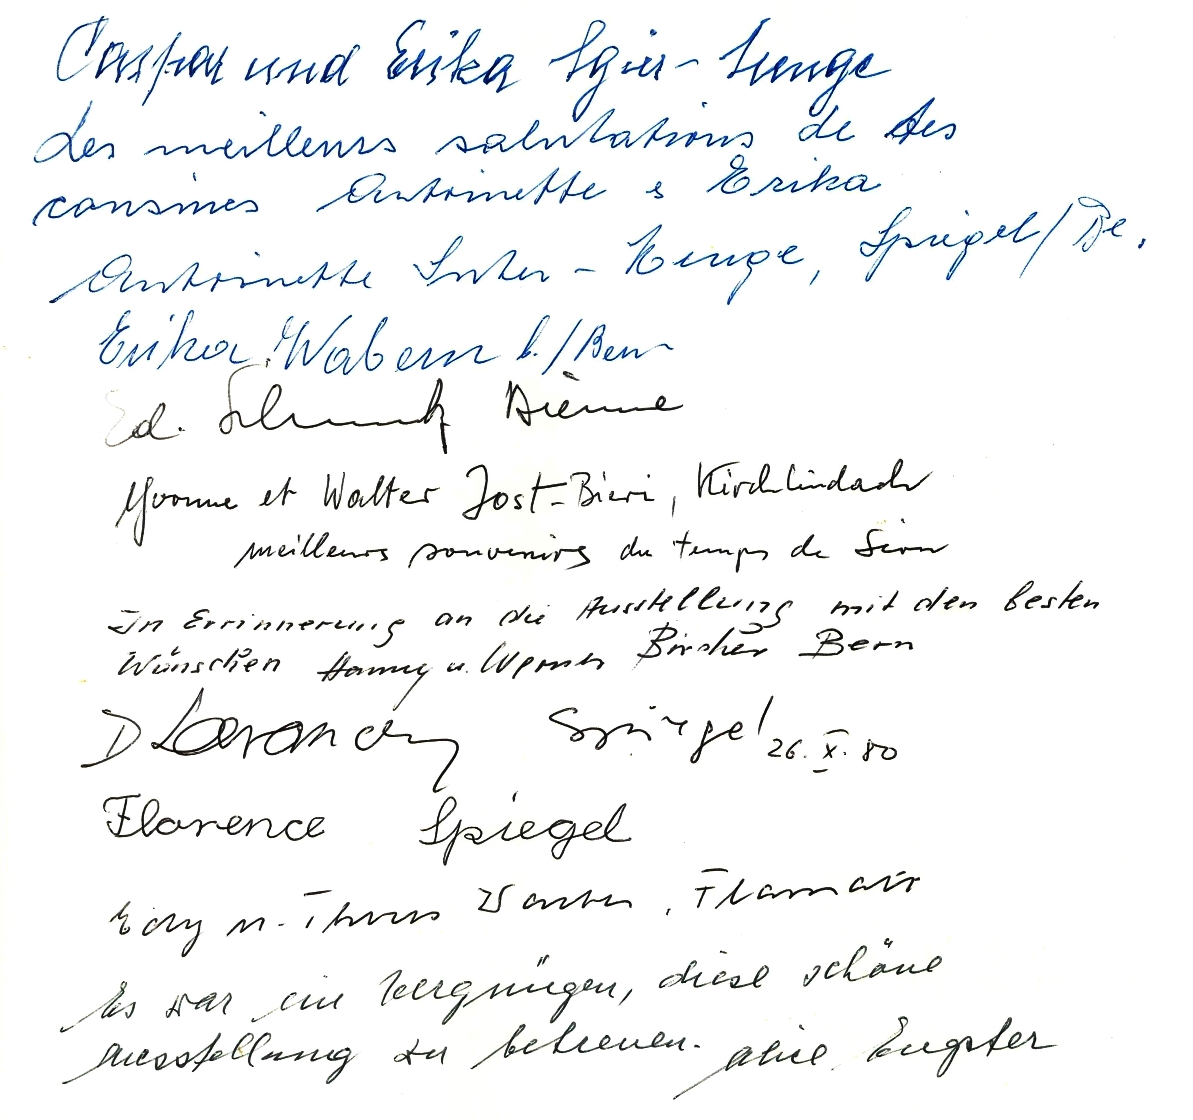 Caspar und Erika Sgier-Kunge
Les meilleurs salutations de tes
cousines Antoinette e Erika
Antoinette Suter-Kunge, Spiegel/Be.
Erika Wabern b./Bern
Ed. Bienne
Yvonne et Walter Jost-Bieri, Kirchlindach
meilleurs souvenirs du temps de Sion
In Errinnerung an die Ausstellung mit den besten
Wünschen Hanny u. Werner Bircher Bern
D Spiegel 26.X.80
Florence Spiegel
Edy u. , Flamatt
Es war ein Vergnügen, diese schöne
Ausstellung zu betreuen. Alice Eugster